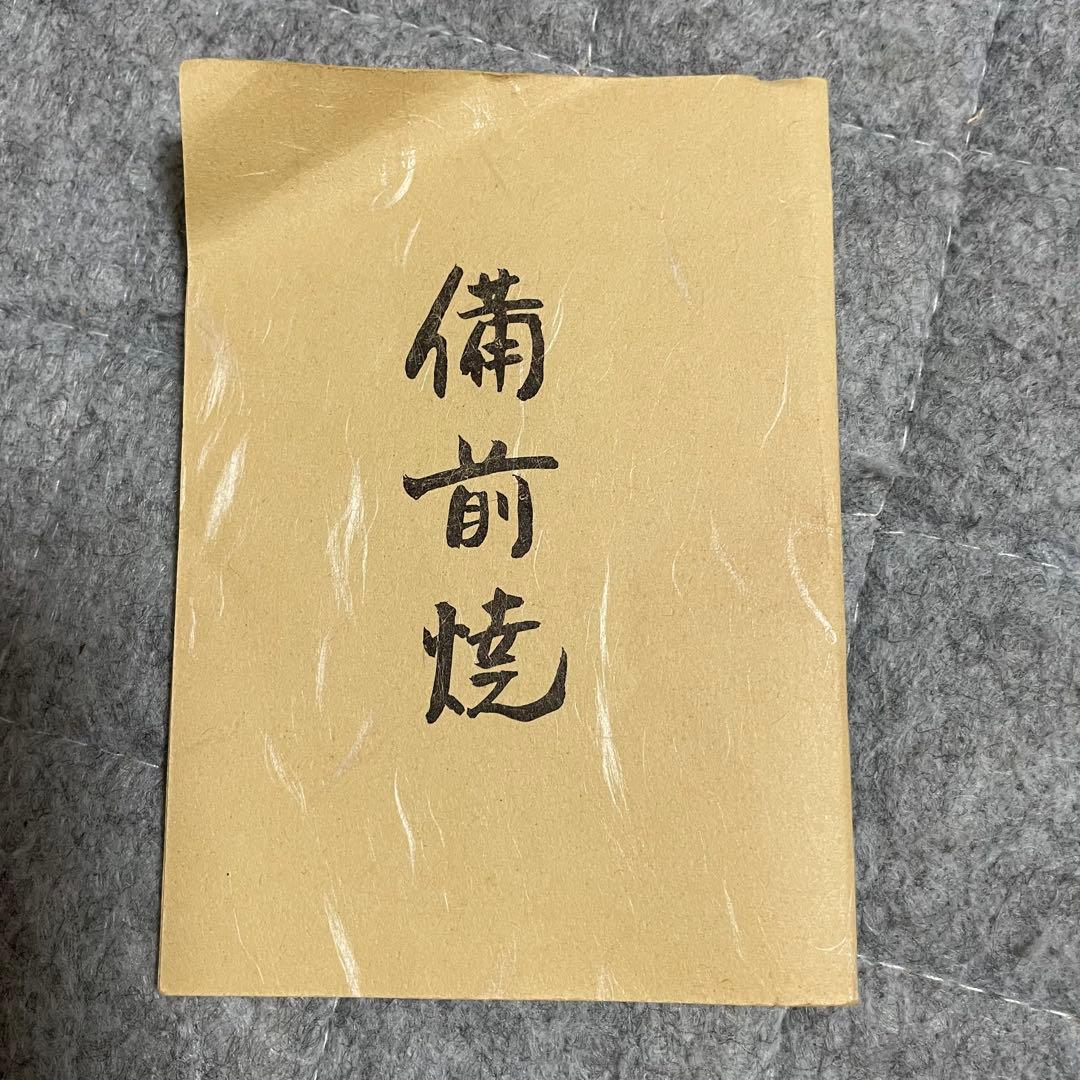 備前焼